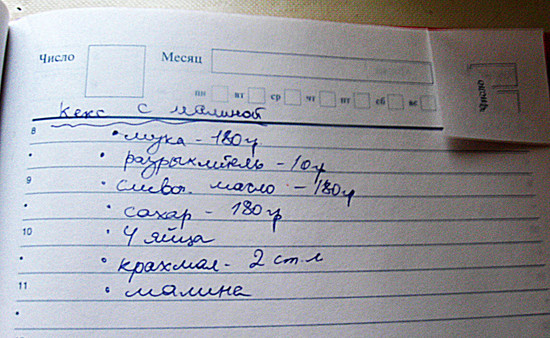 Число Месяц Число
пн вт ср чт пт сб вс
Кекс с малиной
8 • мука - 180 гр
• разрыхлитель - 10 гр
9 • сливоч. масло - 180 гр
• сахар - 180 гр
10 • 4 яйца
• крахмал - 2 ст.л
11 • малина